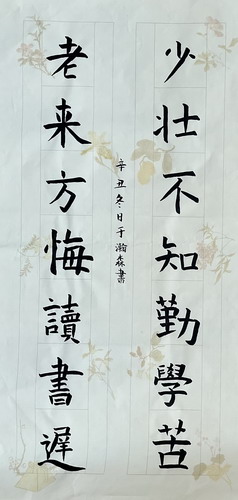 少壮不知勤學苦
老来方悔讀書遲
辛丑冬日于瀚森書